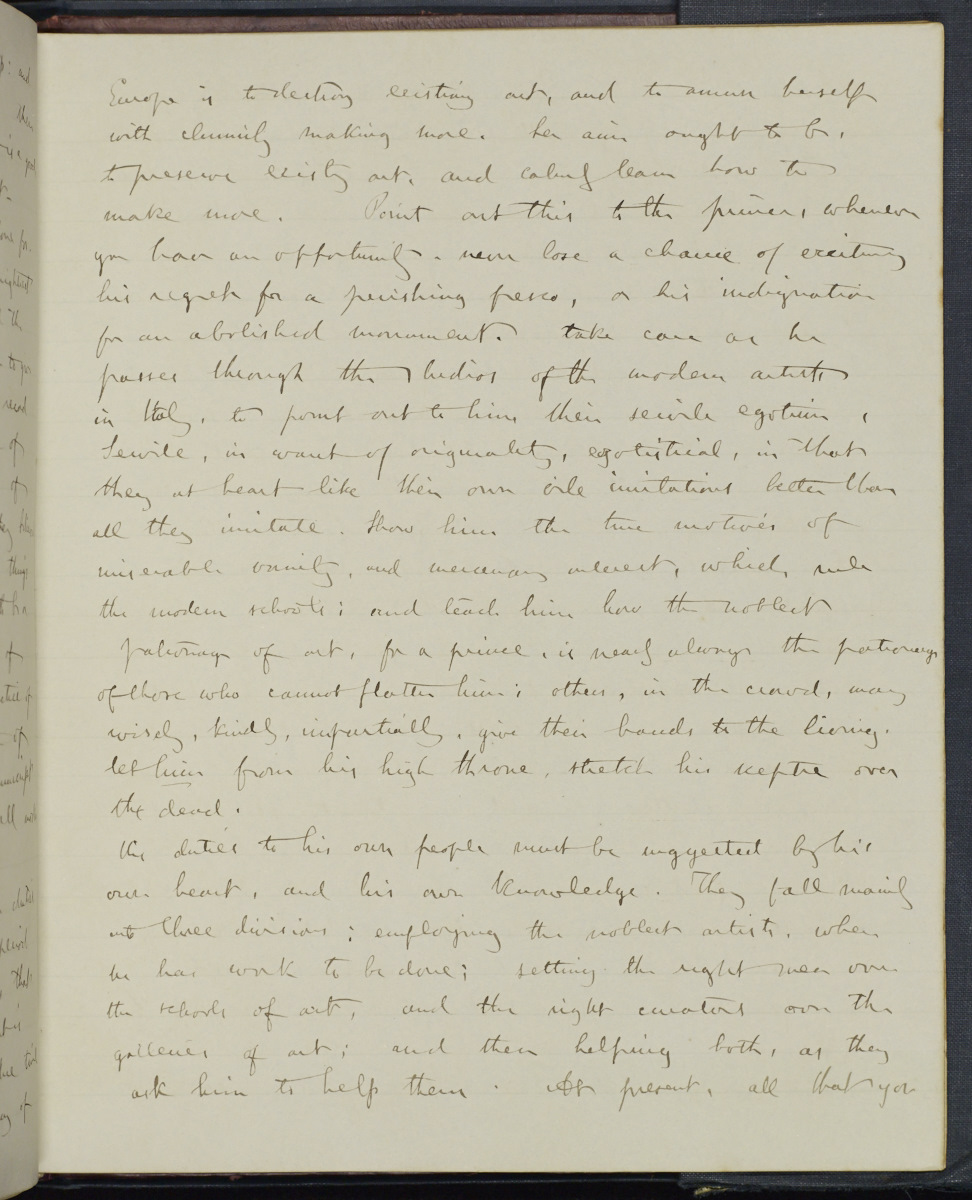 Europe is to destroy existing art, and to amuse herself
with clumsily making more. her aim ought to be,
to preserve existing art, and calmly learn how to
make more. Point out this to the prince, whenever
you have an opportunity. never lose a chance of exciting
his regret for a perishing fresco, or his indignation
for an abolished monument. take care as he
passes through the studios of the modern artists
in Italy, to point out to him their servile egotism,
Servile, in want of originality, egotistical, in that
they at heart like their own vile imitations better than
all they imitate. Show him the true motives of
miserable vanity, and mercenary interest, which rule
the modern schools; and teach him how the noblest
patronage of art, for a prince, is nearly always the patronage
of those who cannot flatter him; others, in the crowd, may
wisely, kindly, impartially, give their hands to the living.
let him from his high throne, stretch his sceptre over
the dead.
His duties to his own people must be suggested by his
own heart, and his own knowledge. They fall mainly
into three divisions; employing the noblest artists, when
he has work to be done; setting the right men over
the schools of art, and the right curators over the
galleries of art; and then helping both, as they
ask him to help them. At present, all that you